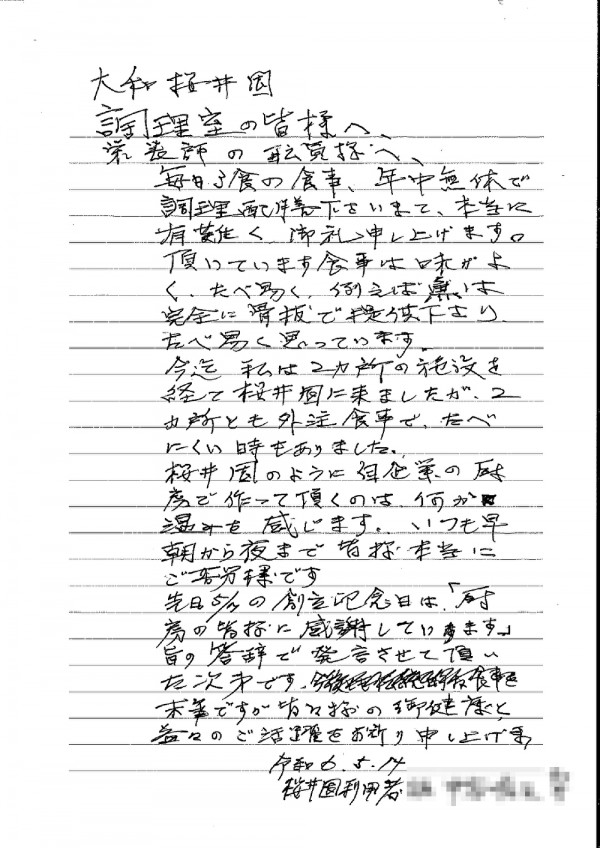 大和桜井園
調理室の皆様へ、
栄養師の 様へ、
毎日3食の食事、年中無休で
調理、配膳下さいまして、本当に
有難く、御礼申し上げます。
頂いています食事は味がよ
く、たべ易く、例えば魚は
完全に骨抜で提供下さり、
たべ易く思っています。
今迄 私は2カ所の施設を
経て桜井園に来ましたが、2
カ所とも外注食事で、たべ
にくい時もありました。
桜井園のように自企業の厨
房で作って頂くのは、何か
温みを感じます。いつも早
朝から夜まで皆様本当に
ご苦労様です
先日5/ の創立記念日は、「厨
房の皆様に感謝しています」
旨の答辞で発言させて頂い
た次第です、
末筆ですが皆々様の御健康と
益々のご活躍をお祈り申し上げます
令和6.5.14
桜井園利用者